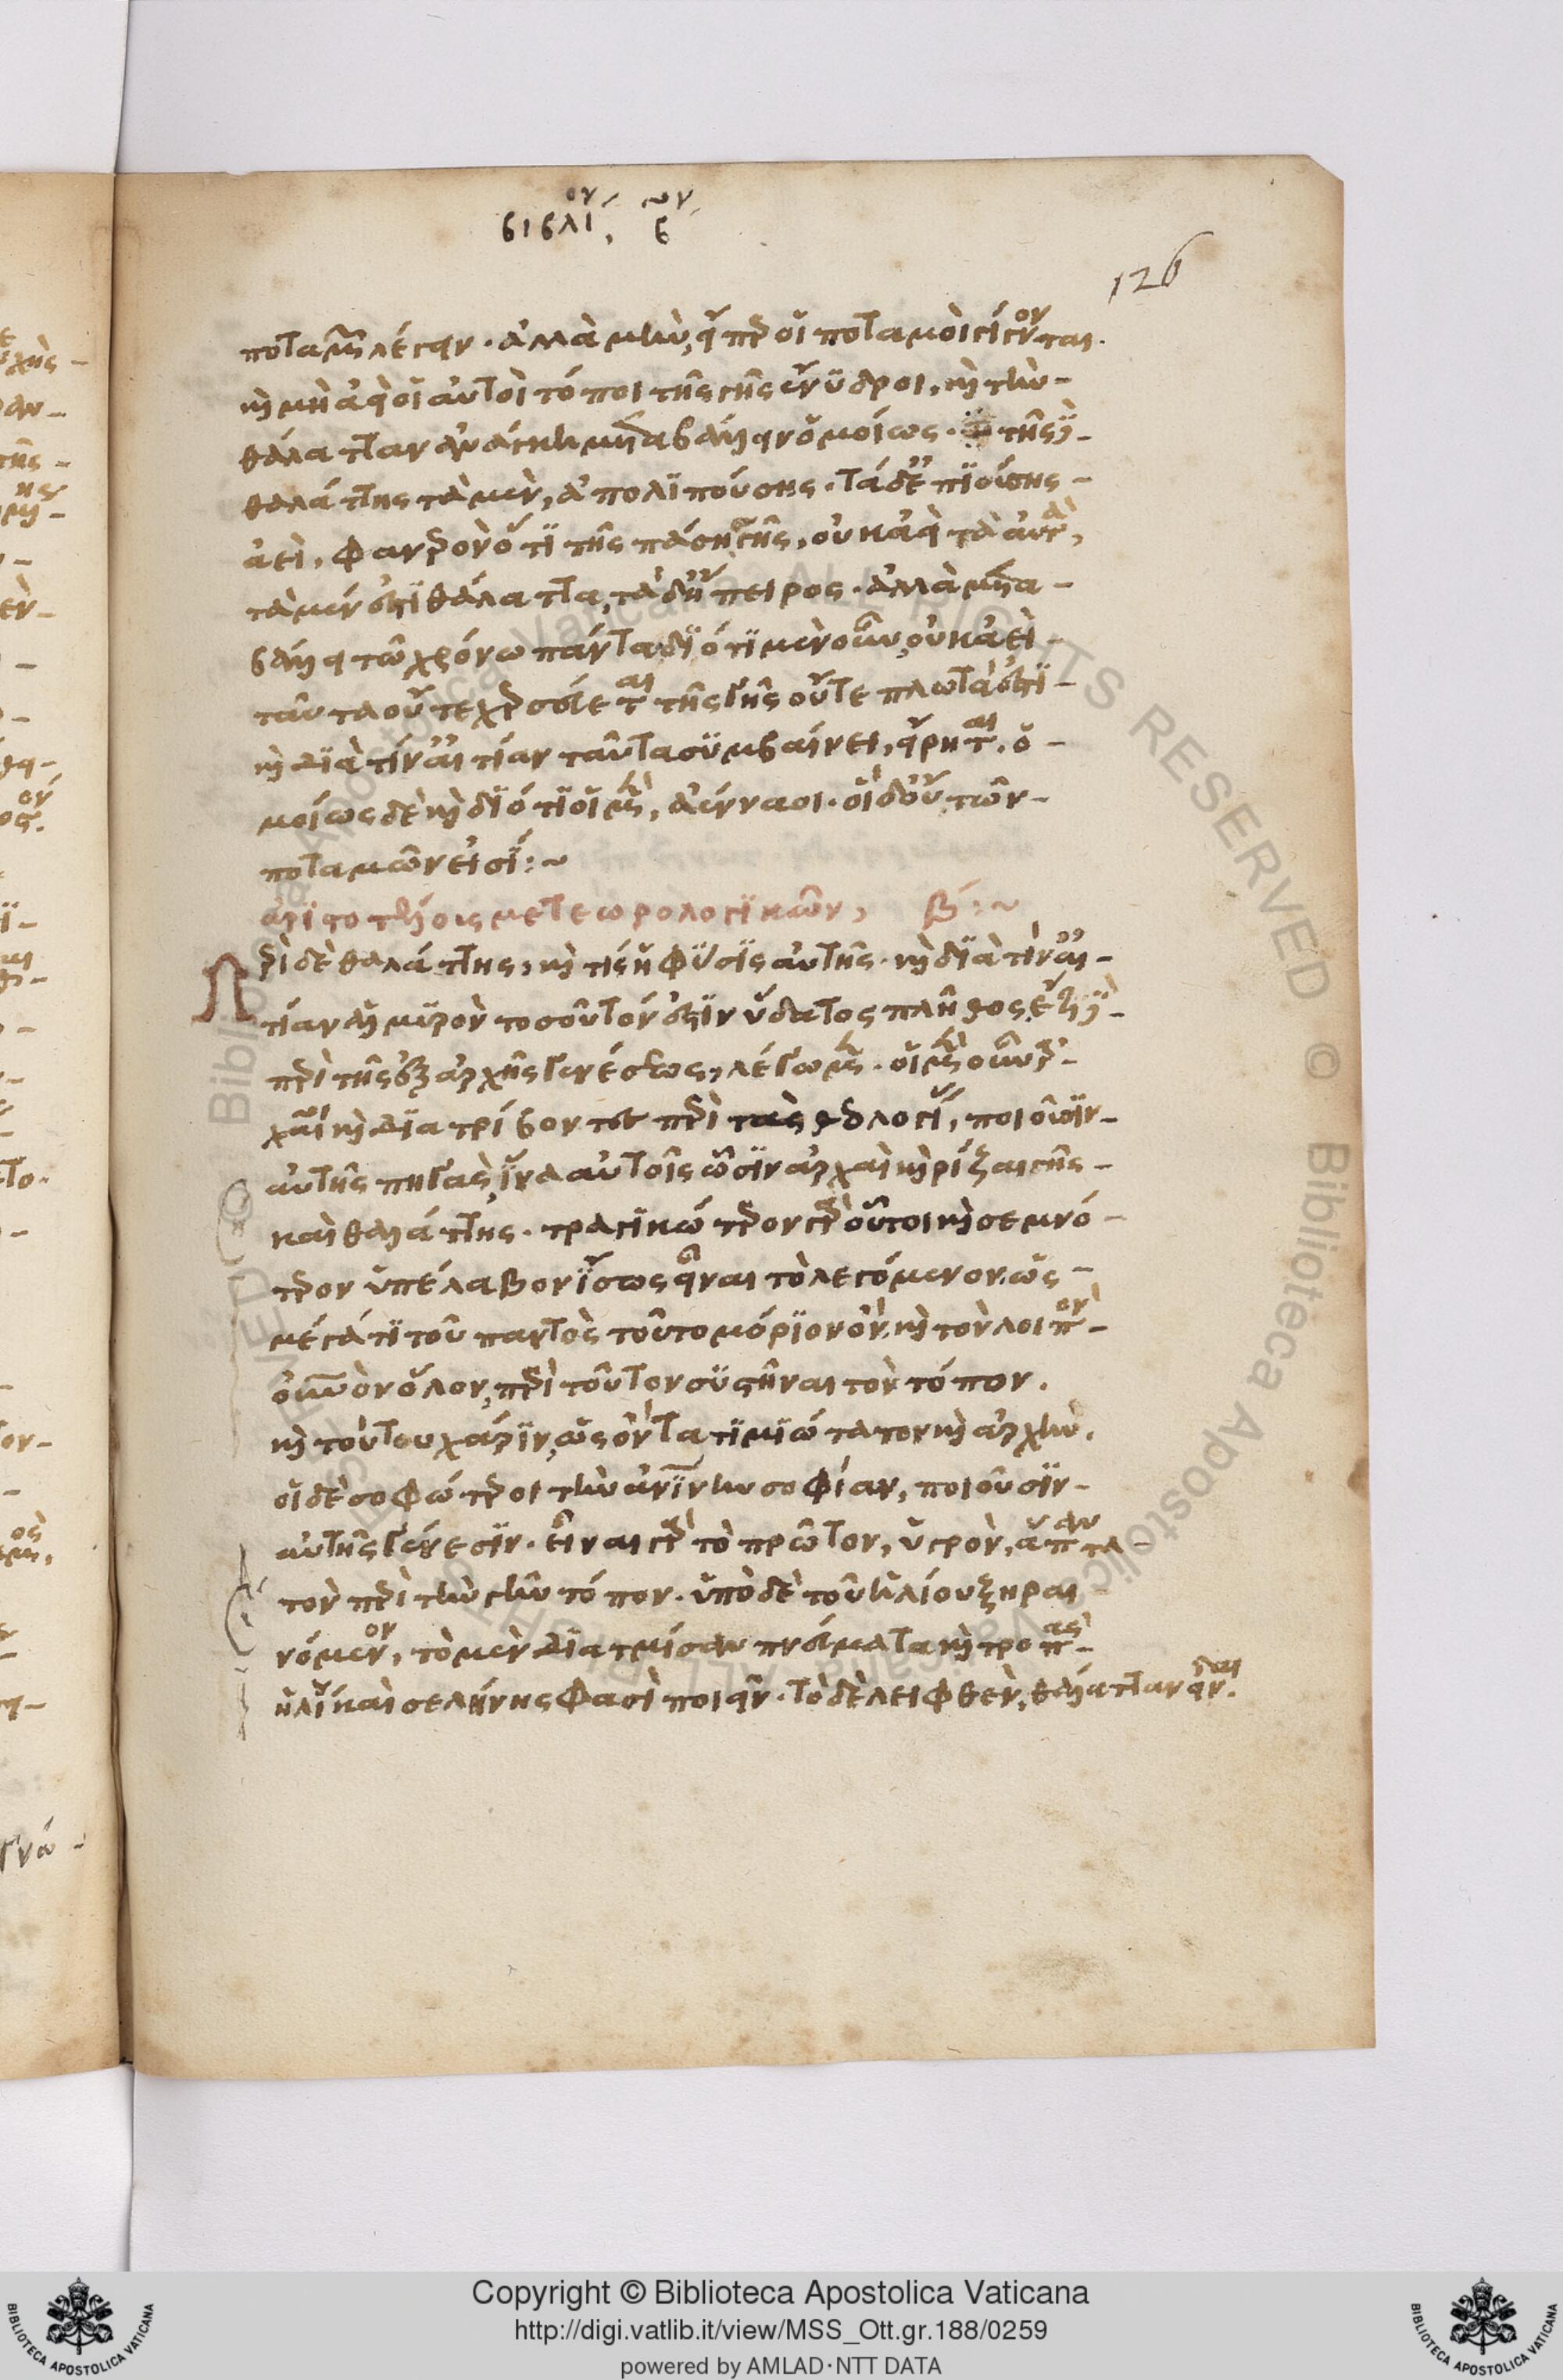 βιβλίον βον
126
ποταμοὺς λέγειν. ἀλλὰ μὴν, εἴπερ οἱ ποταμοὶ γίγνονται.
καὶ μὴ ἀεὶ οἱ αὐτοὶ τόποι τῆς γῆς ἔνυδροι, καὶ τὴν
θάλατταν ἀνάγκη μεταβάλλειν ὁμοίως. τῆς δὲ
θαλάττης τὰ μὲν, ἀπολιπούσης. τὰ δ' ἐπιούσης
ἀεὶ, φανερὸν ὅτι τῆς πάσης γῆς, οὐκ ἀεὶ τὰ αὐτὰ,
τὰ μέν ἐστι θάλαττα, τὰ δ' ἤπειρος. ἀλλὰ μετα
βάλλει τῶ χρόνω πάντα διότι μὲν οὖν, οὐκ ἀεὶ
ταῦτα οὔτε χερσεύεται τῆς γῆς οὔτε πλωτὰ ἐστὶ
καὶ διὰ τίν' αἰτίαν ταῦτα συμβαίνει, εἴρηται. ὁ
μοίως δὲ καὶ διότι οἱ μὲν, ἀένναοι. οἱ δ' οὒ τῶν
ποταμῶν εἰσί:~
ἀριστοτέλους μετεωρολογικῶν, β:~
Περὶ δὲ θαλάττης, καὶ τίς ἡ φύσις αὐτῆς. καὶ διὰ τίν' αἰ
τίαν ἁλμυρὸν τοσοῦτόν ἐστιν ὕδατος πλῆθος, ἔτι δὲ
περὶ τῆς ἐξ ἀρχῆς γενέσεως, λέγωμεν. οἱ μὲν οὖν ἀρ
χαῖοι καὶ διατρίβοντες περὶ τὰς θεολογίας, ποιοῦσιν
αὐτῆς πηγὰς, ἵνα αὐτοῖς ὦσιν ἀρχαὶ καὶ ῥίζαι γῆς
καὶ θαλάττης. τραγικώτερον γὰρ οὕτοι καὶ σεμνό
τερον ὑπέλαβον ἴσως εἶναι τὸ λεγόμενον. ὡς
μέγα τι τοῦ παντὸς τοῦτο μόριον ὂν, καὶ τὸν λοιπὸν
οὐρανὸν ὅλον, περὶ τοῦτον συστῆναι τὸν τόπον.
καὶ τούτου χάριν, ὡς ὄντα τιμιώτατον καὶ ἀρχήν.
οἱ δὲ σοφώτεροι τὴν ἀνθρωπίνην σοφίαν, ποιοῦσιν
αὐτῆς γένεσιν. εἶναι γὰρ τὸ πρῶτον, ὑγρὸν, ἅπαντα
τὸν περὶ τὴν γῆν τόπον. ὑπὸ δὲ τοῦ ἡλίου ξηραι
νόμενον, τὸ μὲν διατμίσαν πνεύματα καὶ τροπὰς
ἡλίου καὶ σελήνης φασὶ ποιεῖν. τὸ δὲ λειφθὲν, θάλατταν εἶναι.
Copyright © Biblioteca Apostolica Vaticana
http://digi.vatlib.it/view/MSS_Ott.gr.188/0259
powered by AMLAD·NTT DATA